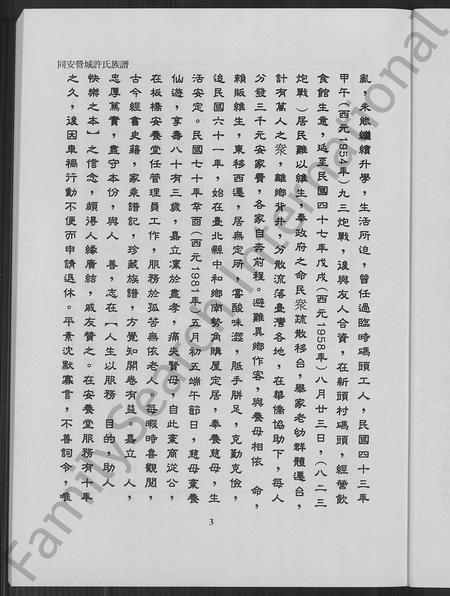 同安營城許氏族譜
亂，未能繼續升學，生活所迫，曾任過臨時碼頭工人，民國四十三年
甲午（西元1954年）九三炮戰，後與友人合資，在新頭村碼頭，經營飲
食館生意，延至民國四十七年戊戌（西元1958年）八月廿三日，（八二三
炮戰）居民難以維生，奉政府之命民眾疏散移台，舉家老幼群體遷台，
計有萬人之眾，離鄉背井，分散流落臺灣各地，在華僑協助下，每人
分發三千元安家費，各家自奔前程。避難異鄉作客，與養母相依 命，
賴販維生，東移西遷，居無定所，嘗酸味澀，胝手胼足，克勤克儉，
迨民國六十一年，始在臺北縣中和鄉南勢角購屋定居，奉養慈母，生
活安定。民國七十年辛酉（西元1981年）五月初五端午節日，慈母棄養
仙遊，享壽八十有三歲，嘉立凜於盡孝，痛失賢母，自此棄商從公，
在板橋安養堂任管理員工作，服務於孤苦無依老人，每暇時喜觀閱，
古今經書史籍，家乘譜記，珍藏族譜，方覺知開卷有益。嘉立 人，
忠厚篤實，盡守本份，與人 善，志在【人生以服務 目的，助人
快樂之本】之信念，頗得人緣廣結，戚友贊之。在安養堂服務有十年
之久，後因車禍行動不便而申請退休。平素沈默寡言，不善詞令，唯
3
FamilySearch International